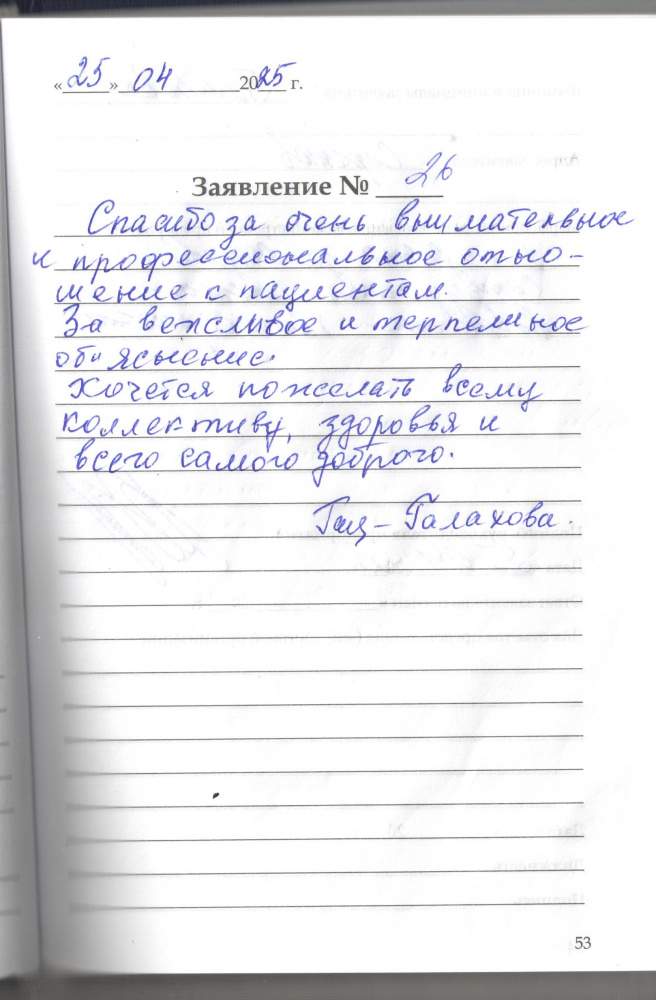 «25» 04 2025 г.
Заявление № 26
Спасибо за очень внимательное
и профессиональное отно-
шение к пациентам.
За вежливое и терпеливое
объяснение.
Хочется пожелать всему
коллективу, здоровья и
всего самого доброго.
Галахова.
53